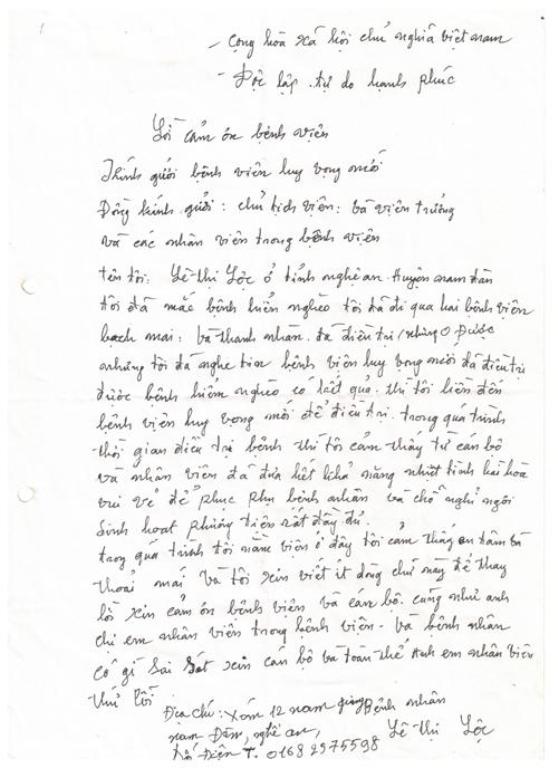 1
- cộng hòa xã hội chủ nghĩa việt nam
- Độc lập. tự do hạnh phúc
Lời cảm ơn bệnh viện
Kính gửi bệnh viện hy vọng mới
Đồng kính gửi: chủ tịch viện: bà viện trưởng
và các nhân viên trong bệnh viện
tên tôi: Lê thị Lộc ở tỉnh nghệ an. Huyện nam đàn
tôi đã mắc bệnh hiểm nghèo tôi đã đi qua hai bệnh viên
bạch mai: và thanh nhàn. đã điều trị, nhưng 0 Được
nhưng tôi đã nghe tin bệnh viện huy vọng mới đã điều trị
được bệnh hiểm nghèo có kết quả. thì tôi liền đến
bệnh viện huy vọng mới để điều trị. trong quá trình
thời gian điều trị bệnh thì tôi cảm thấy từ cán bộ
và nhân viên đã đưa hết khả năng nhiệt tình hài hòa
vui vẻ để phục phụ bệnh nhân và chỗ nghỉ ngơi
sinh hoạt phương tiện rất đầy đủ.
trong quá trình tôi nằm viện ở đây tôi cảm thấy an tâm và
thoải mái và tôi xin viết ít dòng chữ này để thay
lời xin cảm ơn bệnh viện và cán bộ. cũng như anh
chị em nhân viên trong bệnh viện - và bệnh nhân
có gì sai sót xin cán bộ và toàn thể Anh em nhân viên
thứ lỗi
Địa chỉ: Xóm 12 nam giang Bệnh nhân
nam Đàn, nghệ an,
Số Điện T. 0168 2975598 Lê thị Lộc